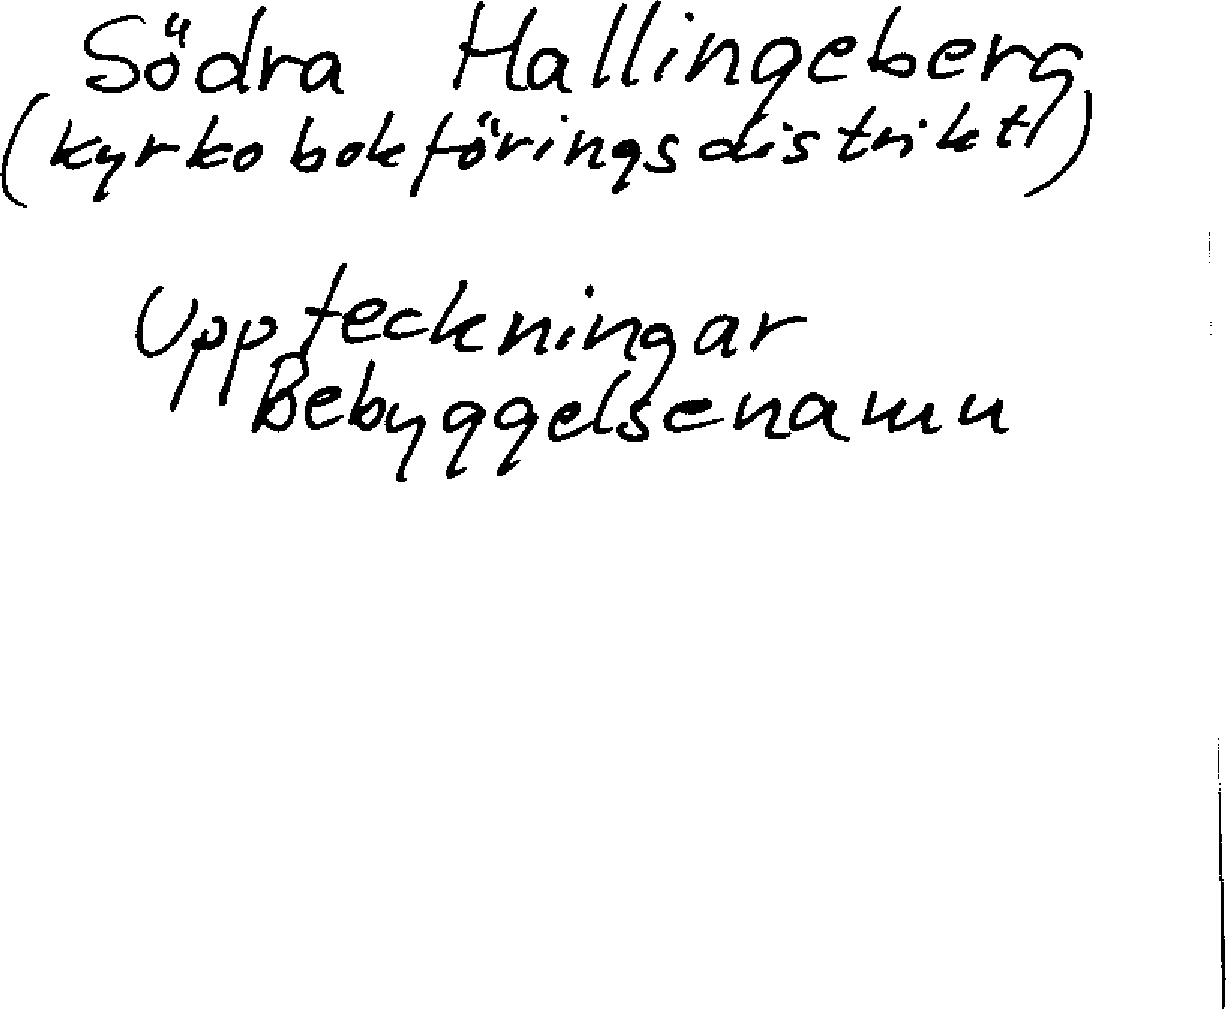 Södra Hallingeberg
(kyrkobokföringsdistrikt)
Uppteckningar
Bebyggelsenamn